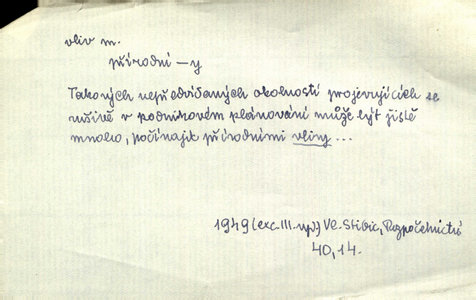 vliv m.
přírodní —y
Takových nepředvídaných okolností projevujících se
rušivě v podnikovém plánování může být jistě
mnoho, počínajíc přírodními vlivy ...
1949 (exc. III. vyd) Vl. Stibic, Rozpočetnictví
40, 14.